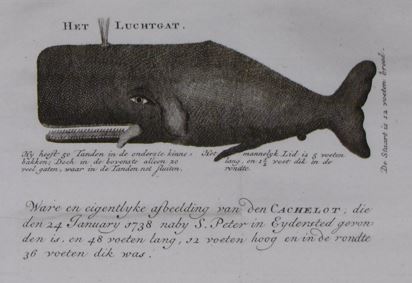 HET LUCHTGAT.
De Staart is 12 voeten breed.
Hy heeft 50 Tanden in de onderste kinne-
bakken; Doch in de bovenste alleen zo
veel gaten, waar in de Tanden net sluiten.
Het mannelyk Lid is 5 voeten
lang, en 1½ voet dik in de
rondte.
Ware en eigentlyke afbeelding van den CACHELOT, die
den 24 January 1738 naby S. Peter in Eydersted gevon-
den is, en 48 voeten lang, 12 voeten hoog en in de rondte
36 voeten dik was.